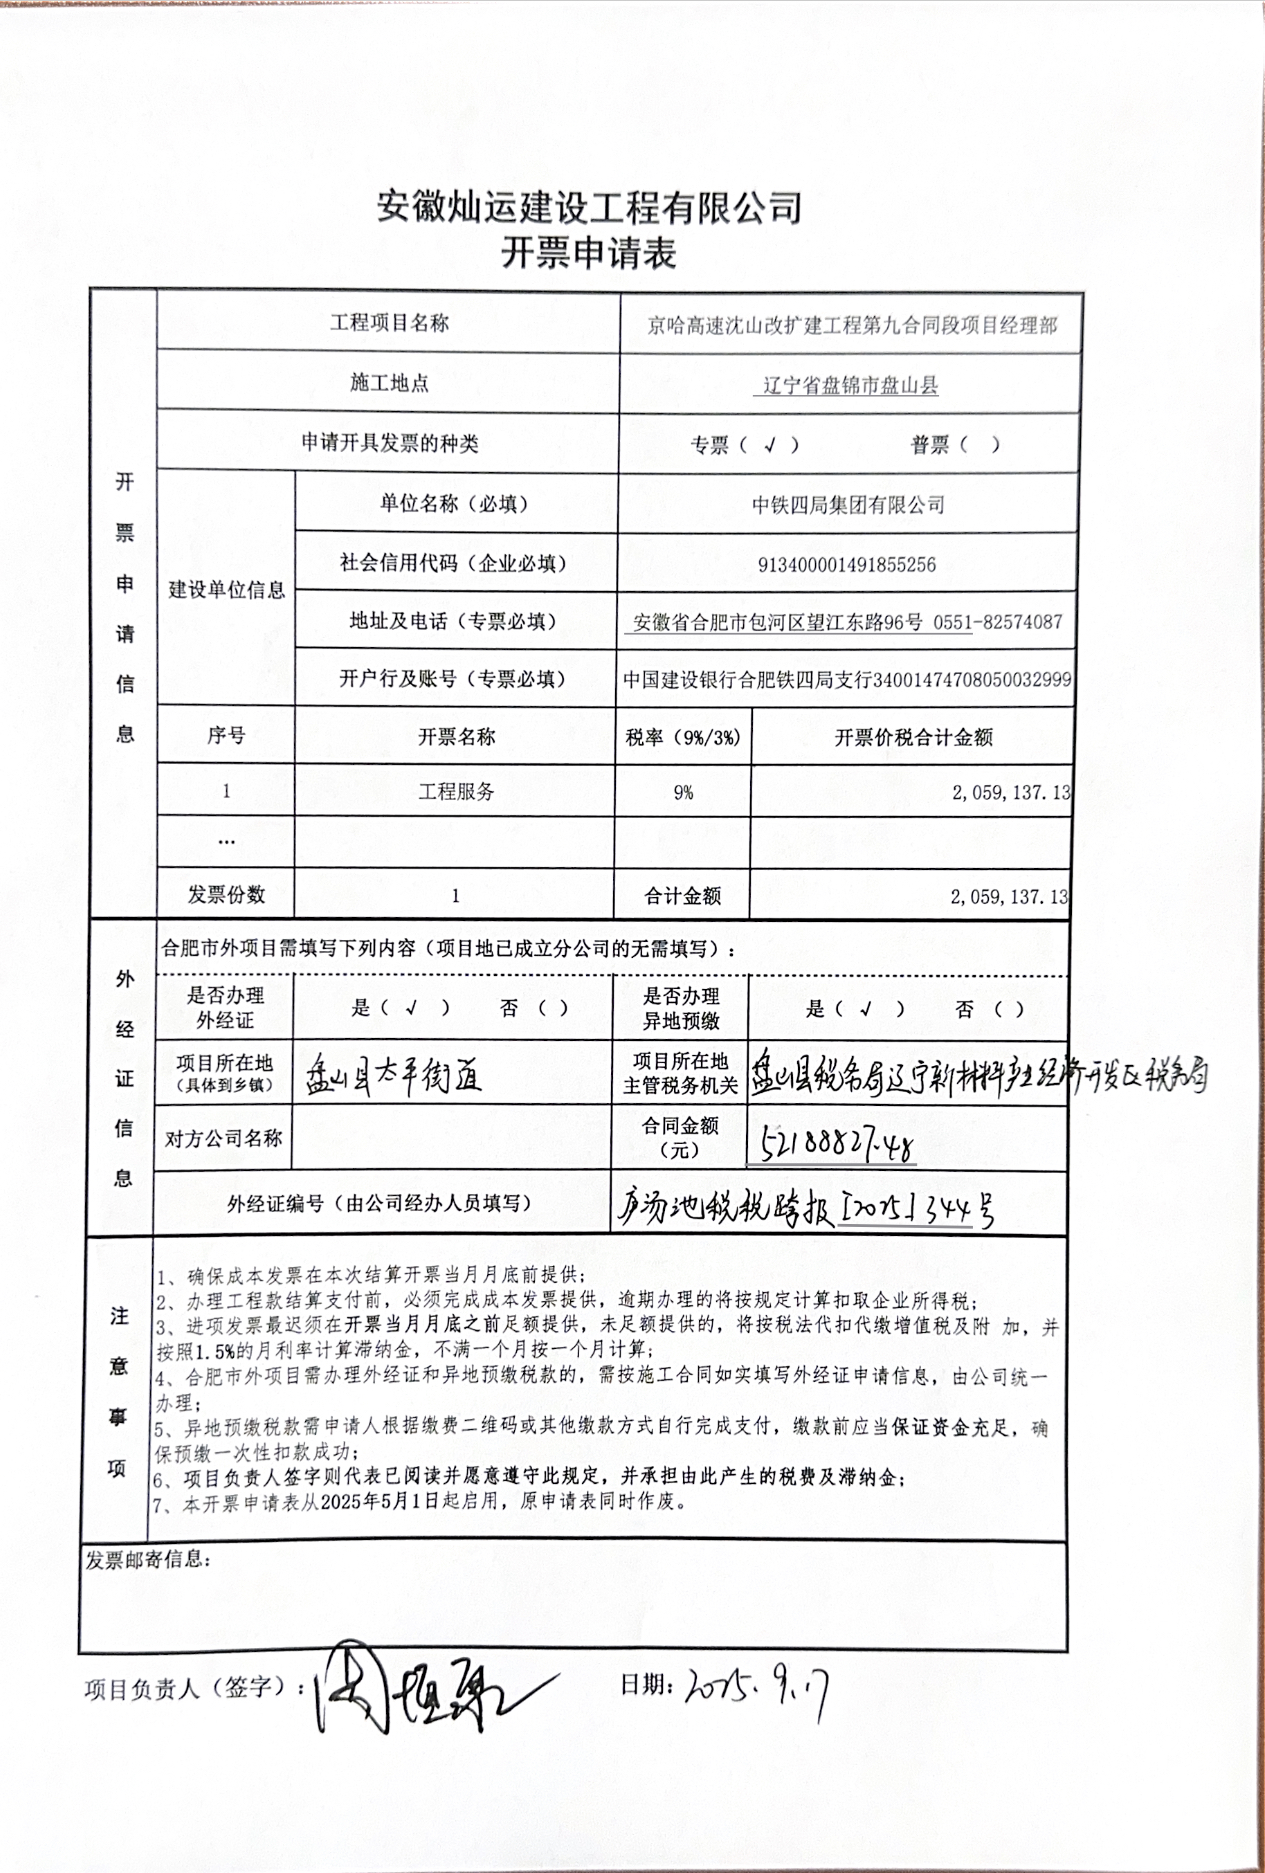 安徽灿运建设工程有限公司
开票申请表
开票申请信息
工程项目名称 京哈高速沈山改扩建工程第九合同段项目经理部
施工地点 辽宁省盘锦市盘山县
申请开具发票的种类 专票（ √ ） 普票（ ）
建设单位信息
单位名称（必填） 中铁四局集团有限公司
社会信用代码（企业必填） 913400001491855256
地址及电话（专票必填） 安徽省合肥市包河区望江东路96号 0551-82574087
开户行及账号（专票必填） 中国建设银行合肥铁四局支行34001474708050032999
序号 开票名称 税率（9%/3%） 开票价税合计金额
1 工程服务 9% 2,059,137.13
…
发票份数 1 合计金额 2,059,137.13
外经证信息
合肥市外项目需填写下列内容（项目地已成立分公司的无需填写）：
是否办理外经证 是（ √ ） 否 （ ） 是否办理异地预缴 是（ √ ） 否 （ ）
项目所在地（具体到乡镇） 盘山县太平街道 项目所在地主管税务机关 盘山县税务局辽宁新材料产业经济开发区税务局
对方公司名称 合同金额（元） 52188827.48
外经证编号（由公司经办人员填写） 庐汤池税税跨报[2025]344号
注意事项
1、确保成本发票在本次结算开票当月月底前提供；
2、办理工程款结算支付前，必须完成成本发票提供，逾期办理的将按规定计算扣取企业所得税；
3、进项发票最迟须在开票当月月底之前足额提供，未足额提供的，将按税法代扣代缴增值税及附 加，并
按照1.5%的月利率计算滞纳金，不满一个月按一个月计算；
4、合肥市外项目需办理外经证和异地预缴税款的，需按施工合同如实填写外经证申请信息，由公司统一
办理；
5、异地预缴税款需申请人根据缴费二维码或其他缴款方式自行完成支付，缴款前应当保证资金充足，确
保预缴一次性扣款成功；
6、项目负责人签字则代表已阅读并愿意遵守此规定，并承担由此产生的税费及滞纳金；
7、本开票申请表从2025年5月1日起启用，原申请表同时作废。
发票邮寄信息：
项目负责人（签字）： 日期: 2025.9.17